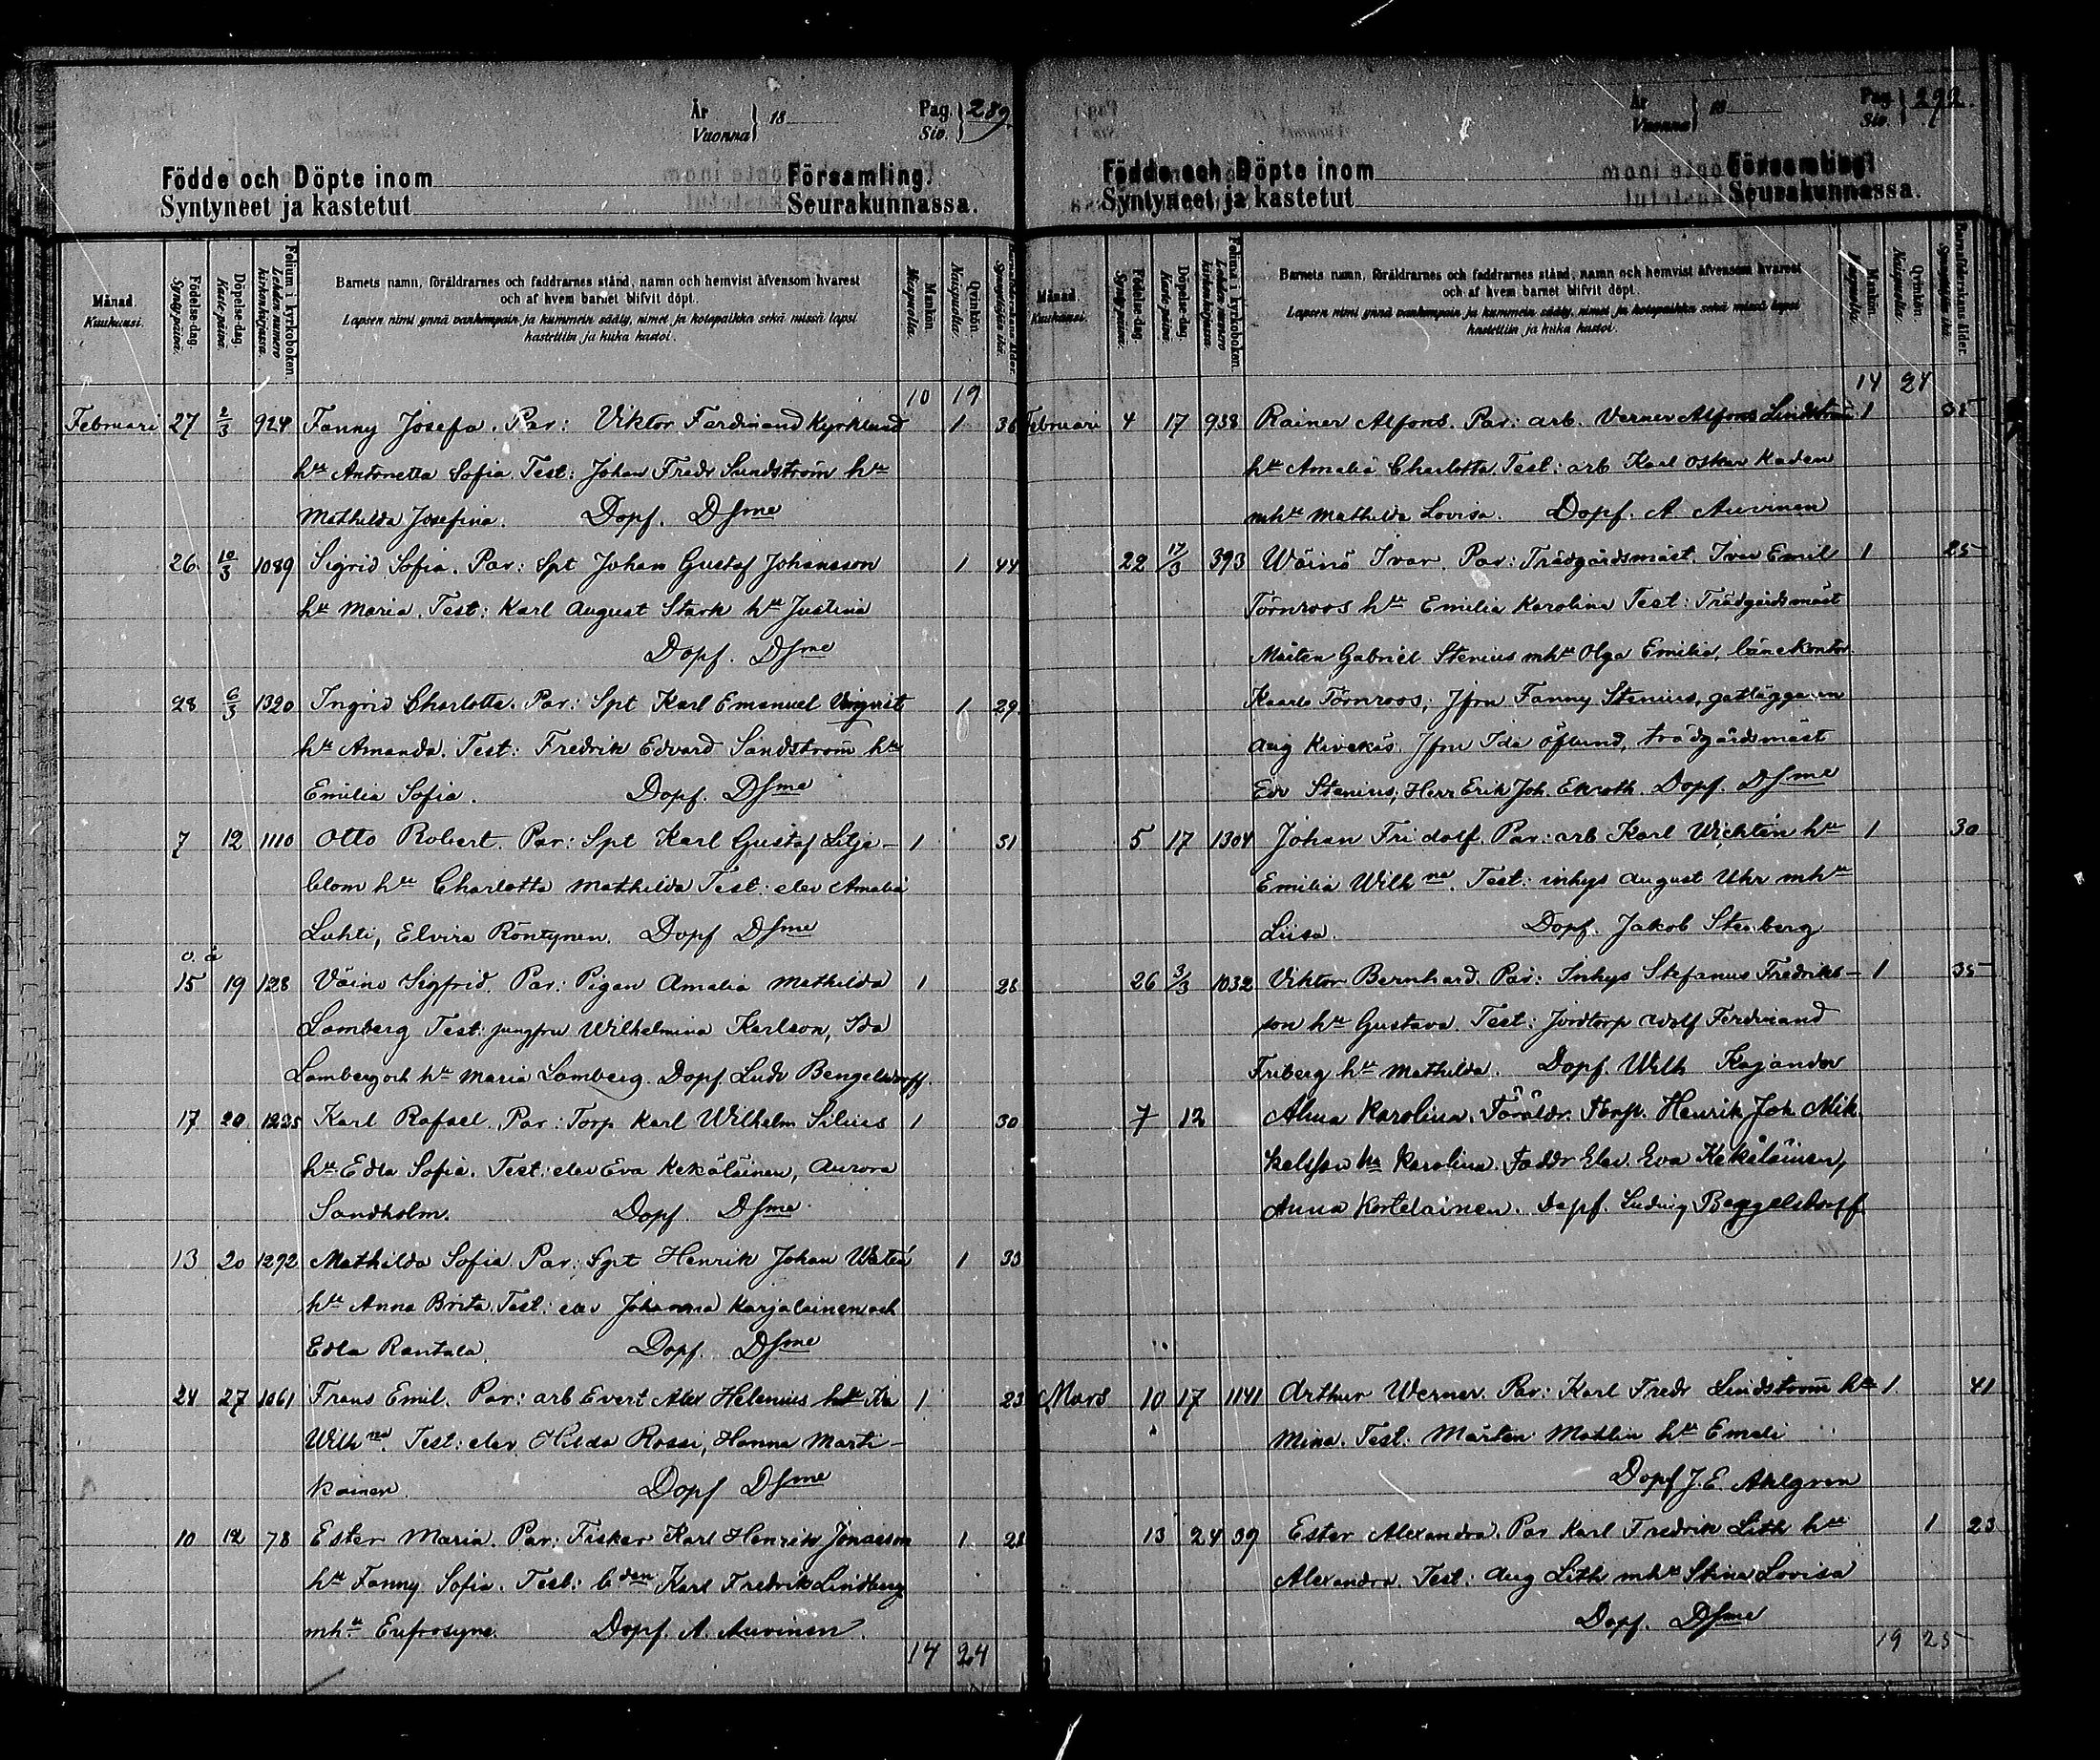 År
Vuonna } 18
Pag.
Siv. } 289.
Födde och Döpte inom Församling.
Syntyneet ja kastetut Seurakunnassa.
Månad.
Kuukausi.
Födelse-dag.
Synty-päivä.
Döpelse-dag.
Kaste-päivä.
Folium i kyrkoboken.
Lehden numero kirkonkirjassa.
Barnets namn, föräldrarnes och faddrarnes stånd, namn och hemvist äfvensom hvarest
och af hvem barnet blifvit döpt.
Lapsen nimi ynnä vanhempain ja kummein sääty, nimet ja kotopaikka sekä missä lapsi
kastettiin ja kuka kastoi.
Mankön.
Miespuolia.
Qvinkön.
Naispuolia.
10 19
Februari 27 2/3 924 Fanny Josefa. Par: Viktor Ferdinand Kyrklund 1 36
hu Antonetta Sofia. Test: Johan Fredr Sundström hu
Mathilda Josefina. Dopf. Dsme
26 10/3 1089 Sigrid Sofia. Par: Spt Johan Gustaf Johansson 1 44
hu Maria. Test: Karl August Stark hu Justina
Dopf. Dsme
28 6/3 1320 Ingrid Charlotta. Par: Spt Karl Emanuel 1 29
hu Amanda. Test: Fredrik Edvard Sandström hu
Emilia Sofia. Dopf. Dsme
7 12 1110 Otto Robert. Par: Spt Karl Gustaf Lilje- 1 31
blom hu Charlotta Mathilda Test: elev Amalia
Luhti, Elvira Röntynen. Dopf Dsme
o. ä
15 19 128 Väino Sigfrid. Par: Pigan Amalia Mathilda 1 28
Lamberg Test: jungfru Wilhelmina Karlson, Ida
Lamberg och hu Maria Lamberg. Dopf. Ludv Bengelsdorff.
17 20 1225 Karl Rafael. Par: Torp Karl Wilhelm Silius 1 30
hu Edla Sofia. Test: elev Eva Kekäläinen, Aurora
Sandholm. Dopf. Dsme
13 20 1292 Mathilda Sofia. Par: Spt Henrik Johan 1 33
hu Anna Brita. Test: elev Johanna Karjalainen och
Edla Rantala. Dopf. Dsme
24 27 1061 Frans Emil. Par: arb Evert Alex Helenius hu 1 23
Wilhna. Test: elev Hilda Rossi, Hanna Marti-
kainen Dopf Dsme
10 12 78 Ester Maria. Par: Fisker Karl Henrik Jonasson 1 28
hu Fanny Sofia. Test: bden Karl Fredrik Lindberg
mhu Eufrosyne. Dopf. A. Auvinen.
14 24
År
Vuonna } 18
Pag.
Siv. } 292.
Födde och Döpte inom Församling.
Syntyneet ja kastetut Seurakunnassa.
Månad.
Kuukausi.
Födelse-dag.
Synty-päivä.
Döpelse-dag.
Kaste-päivä.
Folium i kyrkoboken.
Lehden numero kirkonkirjassa.
Barnets namn, föräldrarnes och faddrarnes stånd, namn och hemvist äfvensom hvarest
och af hvem barnet blifvit döpt.
Lapsen nimi ynnä vanhempain ja kummein sääty, nimet ja kotopaikka sekä missä lapsi
kastettiin ja kuka kastoi.
Mankön.
Miespuolia.
Qvinkön.
Naispuolia.
Barnaföderskans ålder.
Synnyttäjän ikä.
14 24
Februari 4 17 938 Rainer Alfons. Par: arb. Verner Alfons Lindström 1 38
hu Amalia Charlotta. Test: arb Karl Oskar Kaden
mhu Mathilda Lovisa. Dopf. A. Auvinen
22 17/3 393 Wäinö Ivar. Par: Trädgårdsmäst. Ivar Emil 1 25
Törnroos hu Emilia Karolina Test: Trädgårdsmäst
Mårten Gabriel Stenius mhu Olga Emilia, länekontor
Kaarlo Törnroos, Jfru Fanny Stenius,
Aug Kivekäs. Jfru Ida Öflund, trädgårdsmäst
Edv Stenius, Herr Erik Joh. Ekroth. Dopf. Dsme
5 17 1304 Johan Fridolf. Par: arb Karl Wichtén hu 1 30
Emilia Wilhna. Test: inhys August Uhr mhu
Liisa. Dopf. Jakob Stenberg
26 3/3 1032 Viktor Bernhard. Par: Inhys Stefanus Fredriks- 1 35
son hu Gustava. Test: Jordtorp Adolf Ferdinand
Friberg hu Mathilda. Dopf. Wilh Kajander
7 12 Alma Karolina. Föräldr. Torp. Henrik Joh. Mik
kelsson hu Karolina. Faddr Elev. Eva Kekäläinen,
Anna Kortelainen. Dopf. Ludvig Bengelsdorff
Mars 10 17 1141 Arthur Werner. Par: Karl Fredr Lindström hu 1 41
Mina. Test: Mårten Mahlin hu Emeli
Dopf J. E. Ahlgren
13 24 39 Ester Alexandra. Par Karl Fredrik Lith hu 1 23
Alexandra. Test: Aug Lith mhu Stina Lovisa
Dopf. Dsme
19 25